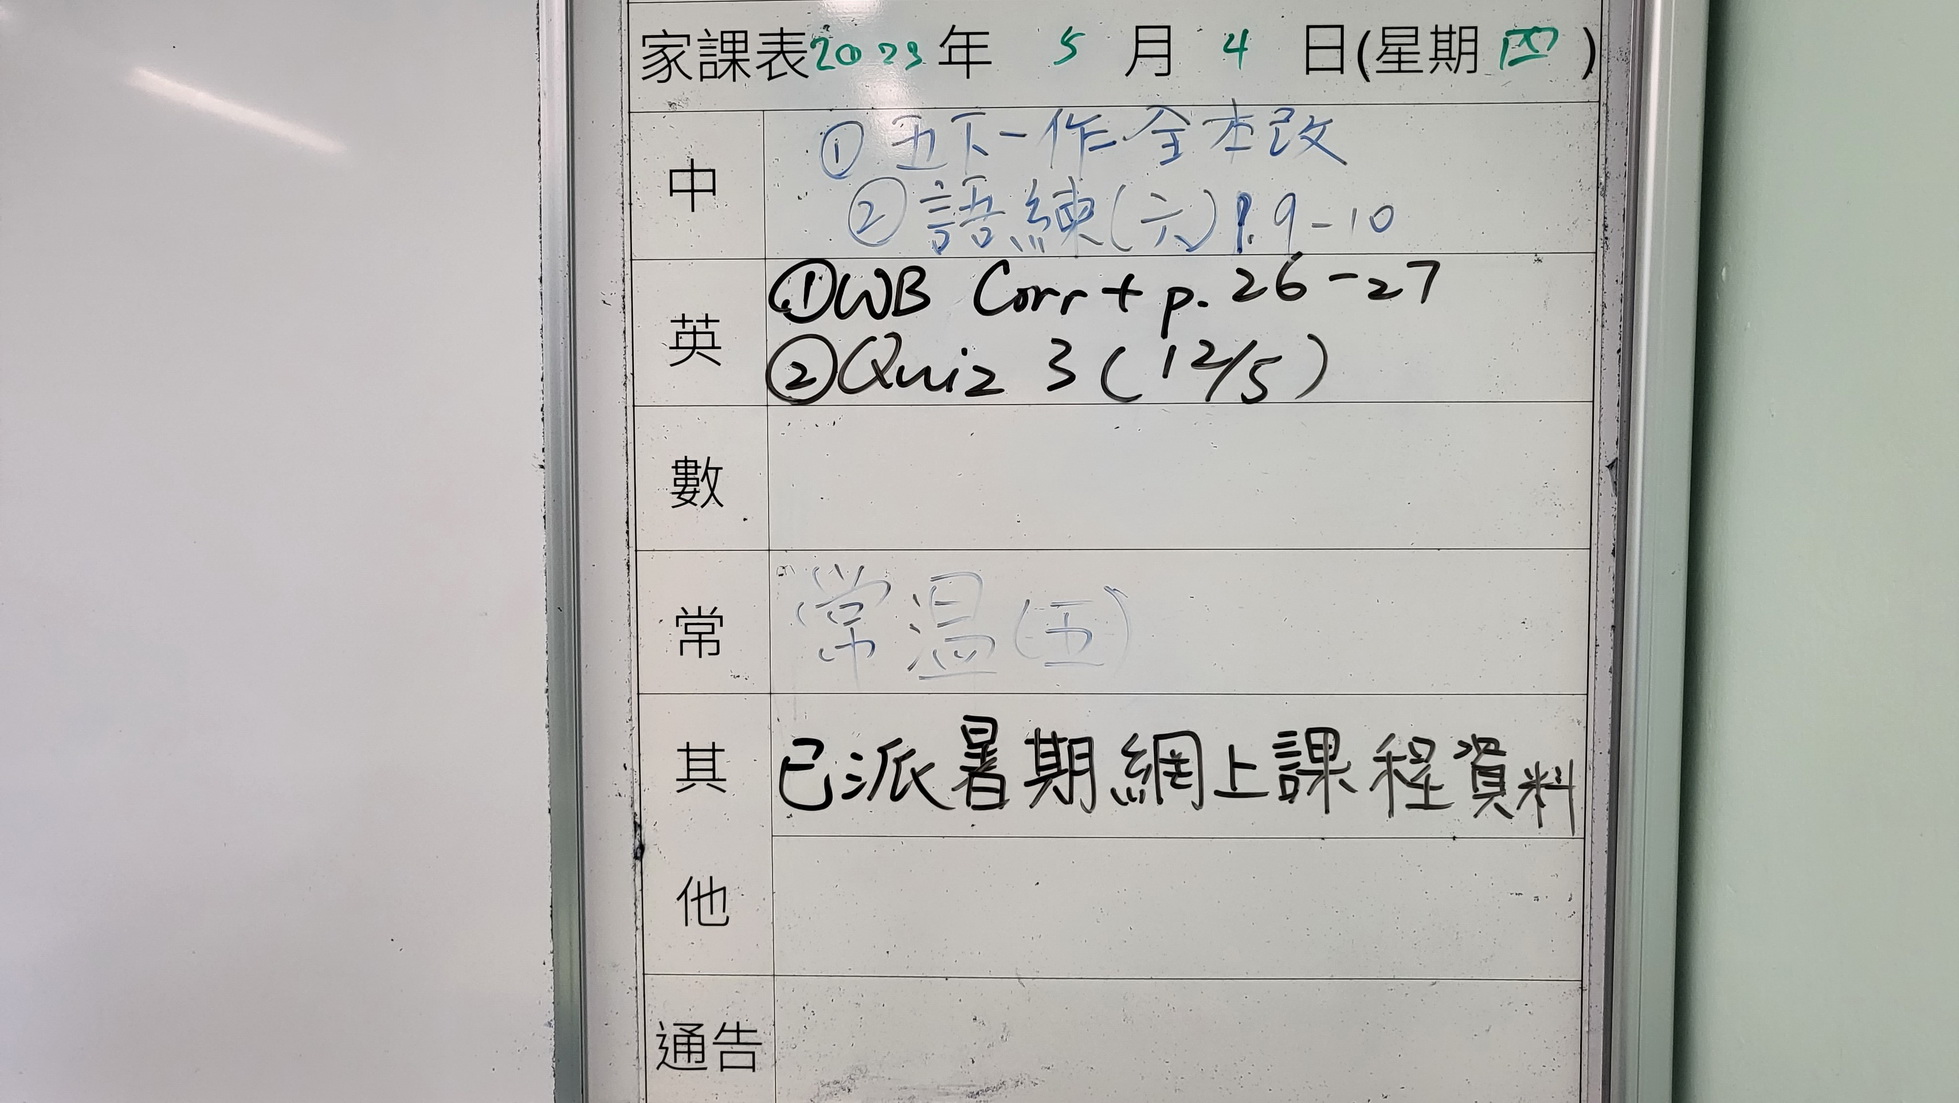 家課表2023年 5月 4日(星期四)
中
① 五下一作全本改
② 語練(六) P.9-10
英
①WB Corr + p. 26-27
②Quiz 3 (12/5)
數
常
常溫(五)
其他
已派暑期網上課程資料
通告